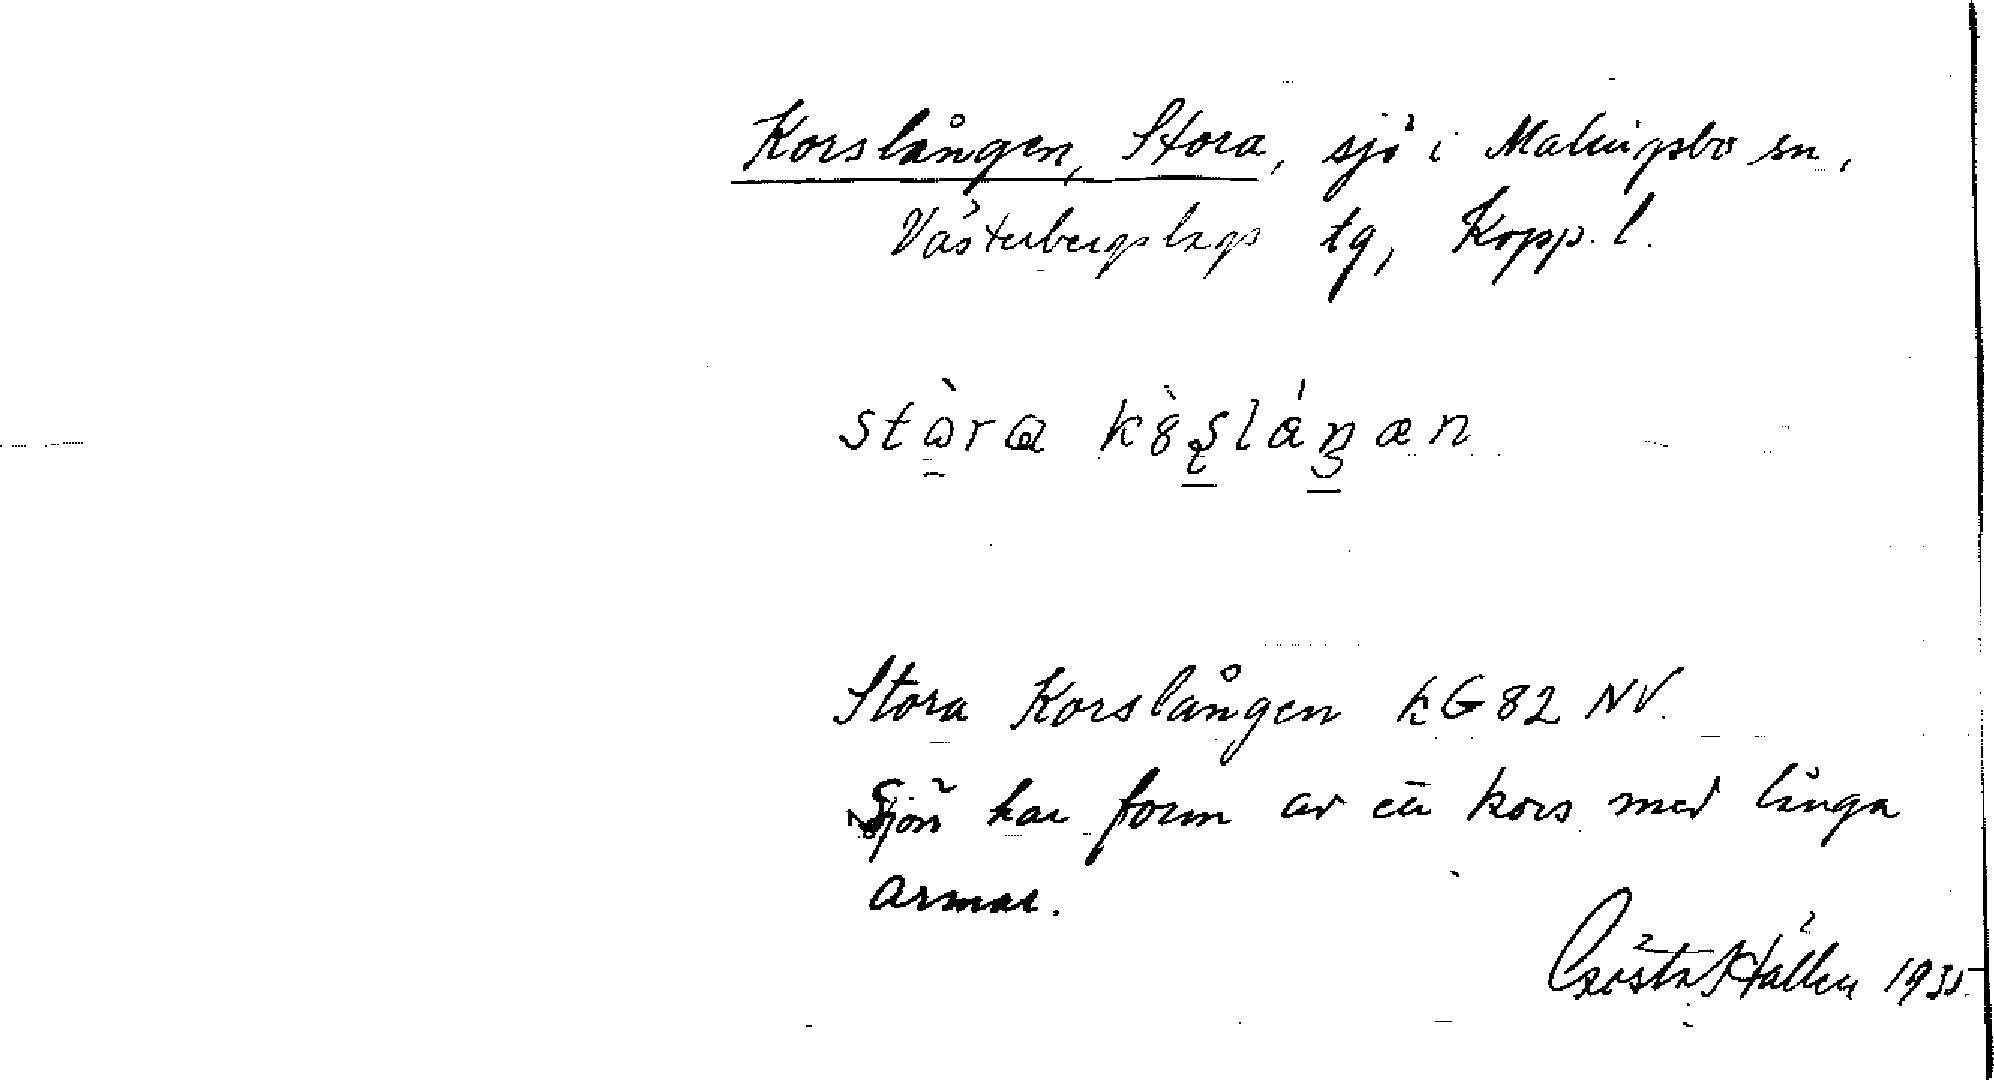 Korslången, Stora, sjö i Malingsbo sn,
Västerbergslags tg, Kopp. l.
Stora Korslången kG 82 NV.
Sjön har form av ett kors med långa
armar.
Gösta Hallen 1935